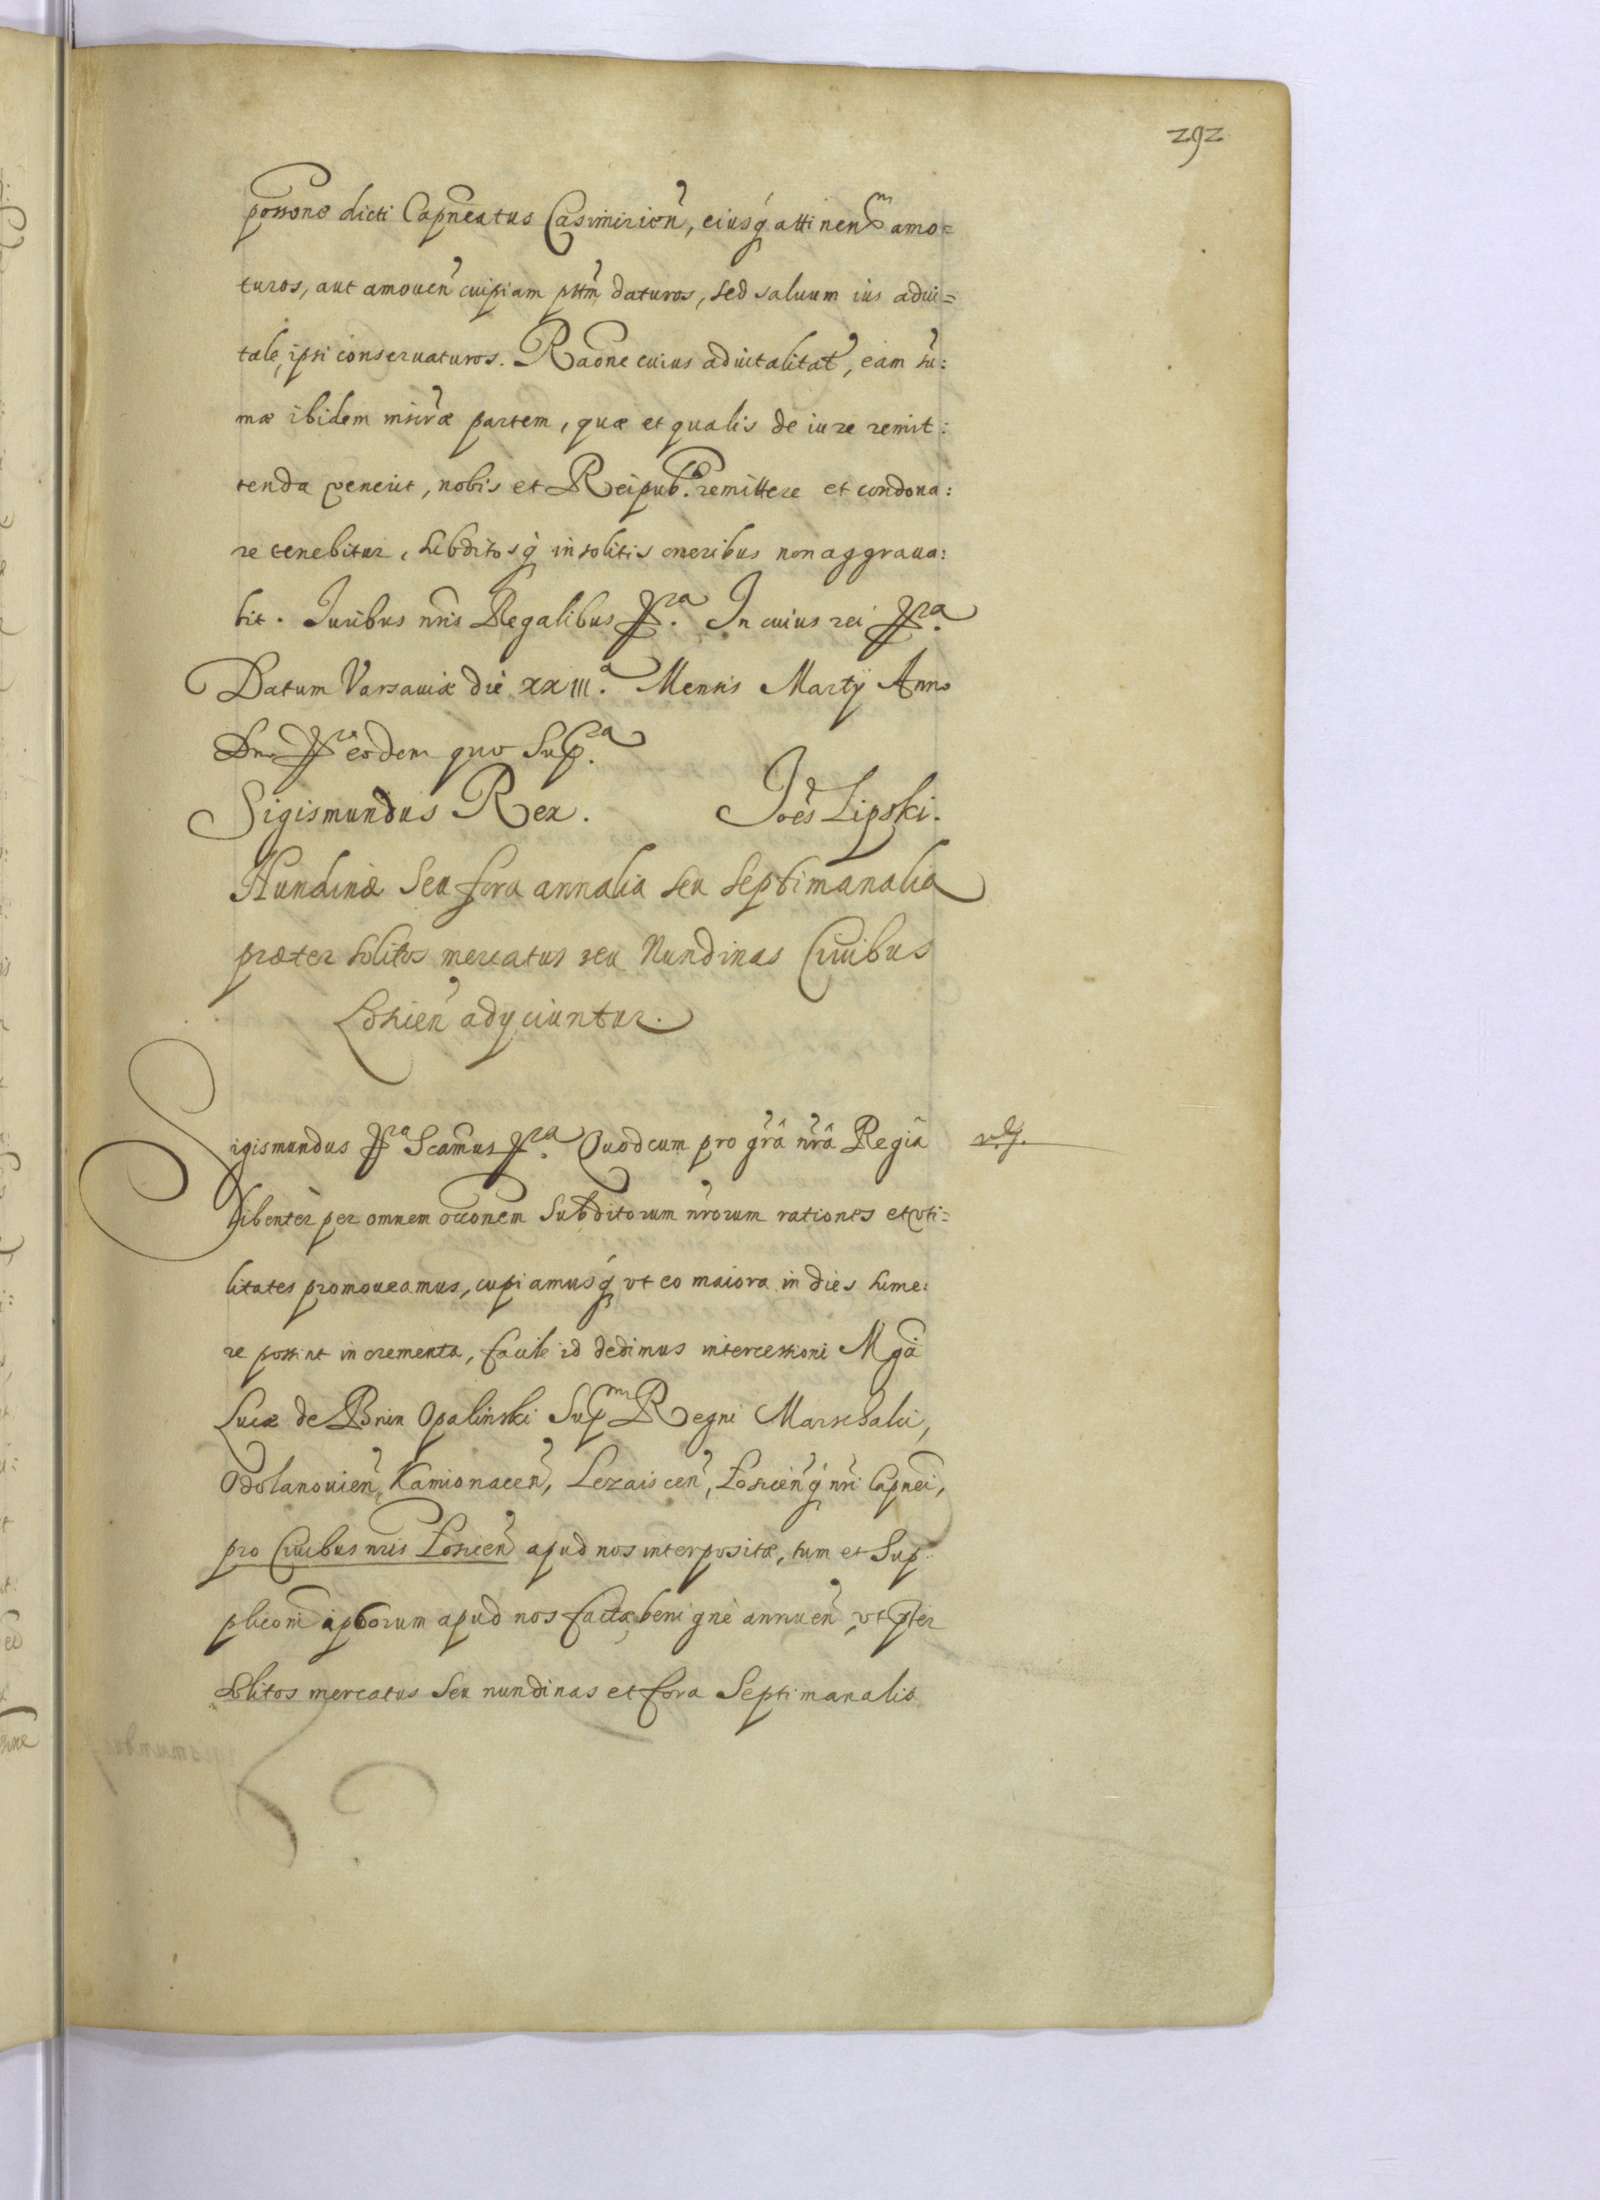 292
possone dicti Capneatus Casimirien, eiusq attinen amo=
turos, aut amouen cuipiam ptm daturos, sed saluum ius adui=
tale, ipsi conseruaturos. Raone cuius aduitalitat, eam su:
mæ ibidem partem, quæ et qualis de iure remit:
tenda venerit, nobis et Reipub. remittere et condona:
re tenebitur, subditosq insolitis oneribus non aggraua:
bit. Juribus nris Regalibus In cuius rei
Datum Varsauiæ die XXIII.a Mensis Martÿ Anno
Dni eodem quo Supra.
Sigismundus Rex. Joes Lipski.
Nundinæ seu fora annalia seu septimanalia
præter solitos mercatus seu Nundinas Ciuibus
Losicen adyciuntur.
Sigismundus Scamus Quod cum pro gra nra Regia
libenter per omnem occonem Subditorum nrorum rationes et vti=
litates promoueamus, cupiamusq vt eo maiora in dies sume:
re possint incrementa, facile id dedimus intercessioni Mgci
Lucæ de Bnin Opalinski Sup Regni Marschalci,
Odolanouien, Kamionacen, Lezaiscen, Łosicenq nri Capnei,
pro Ciuibus nris Łosicen apud nos interpositæ, tum et Sup
pliconi ipsorum apud nos factæ, benignè annuen, vt pter
solitos mercatus seu nundinas et fora Septimanalia